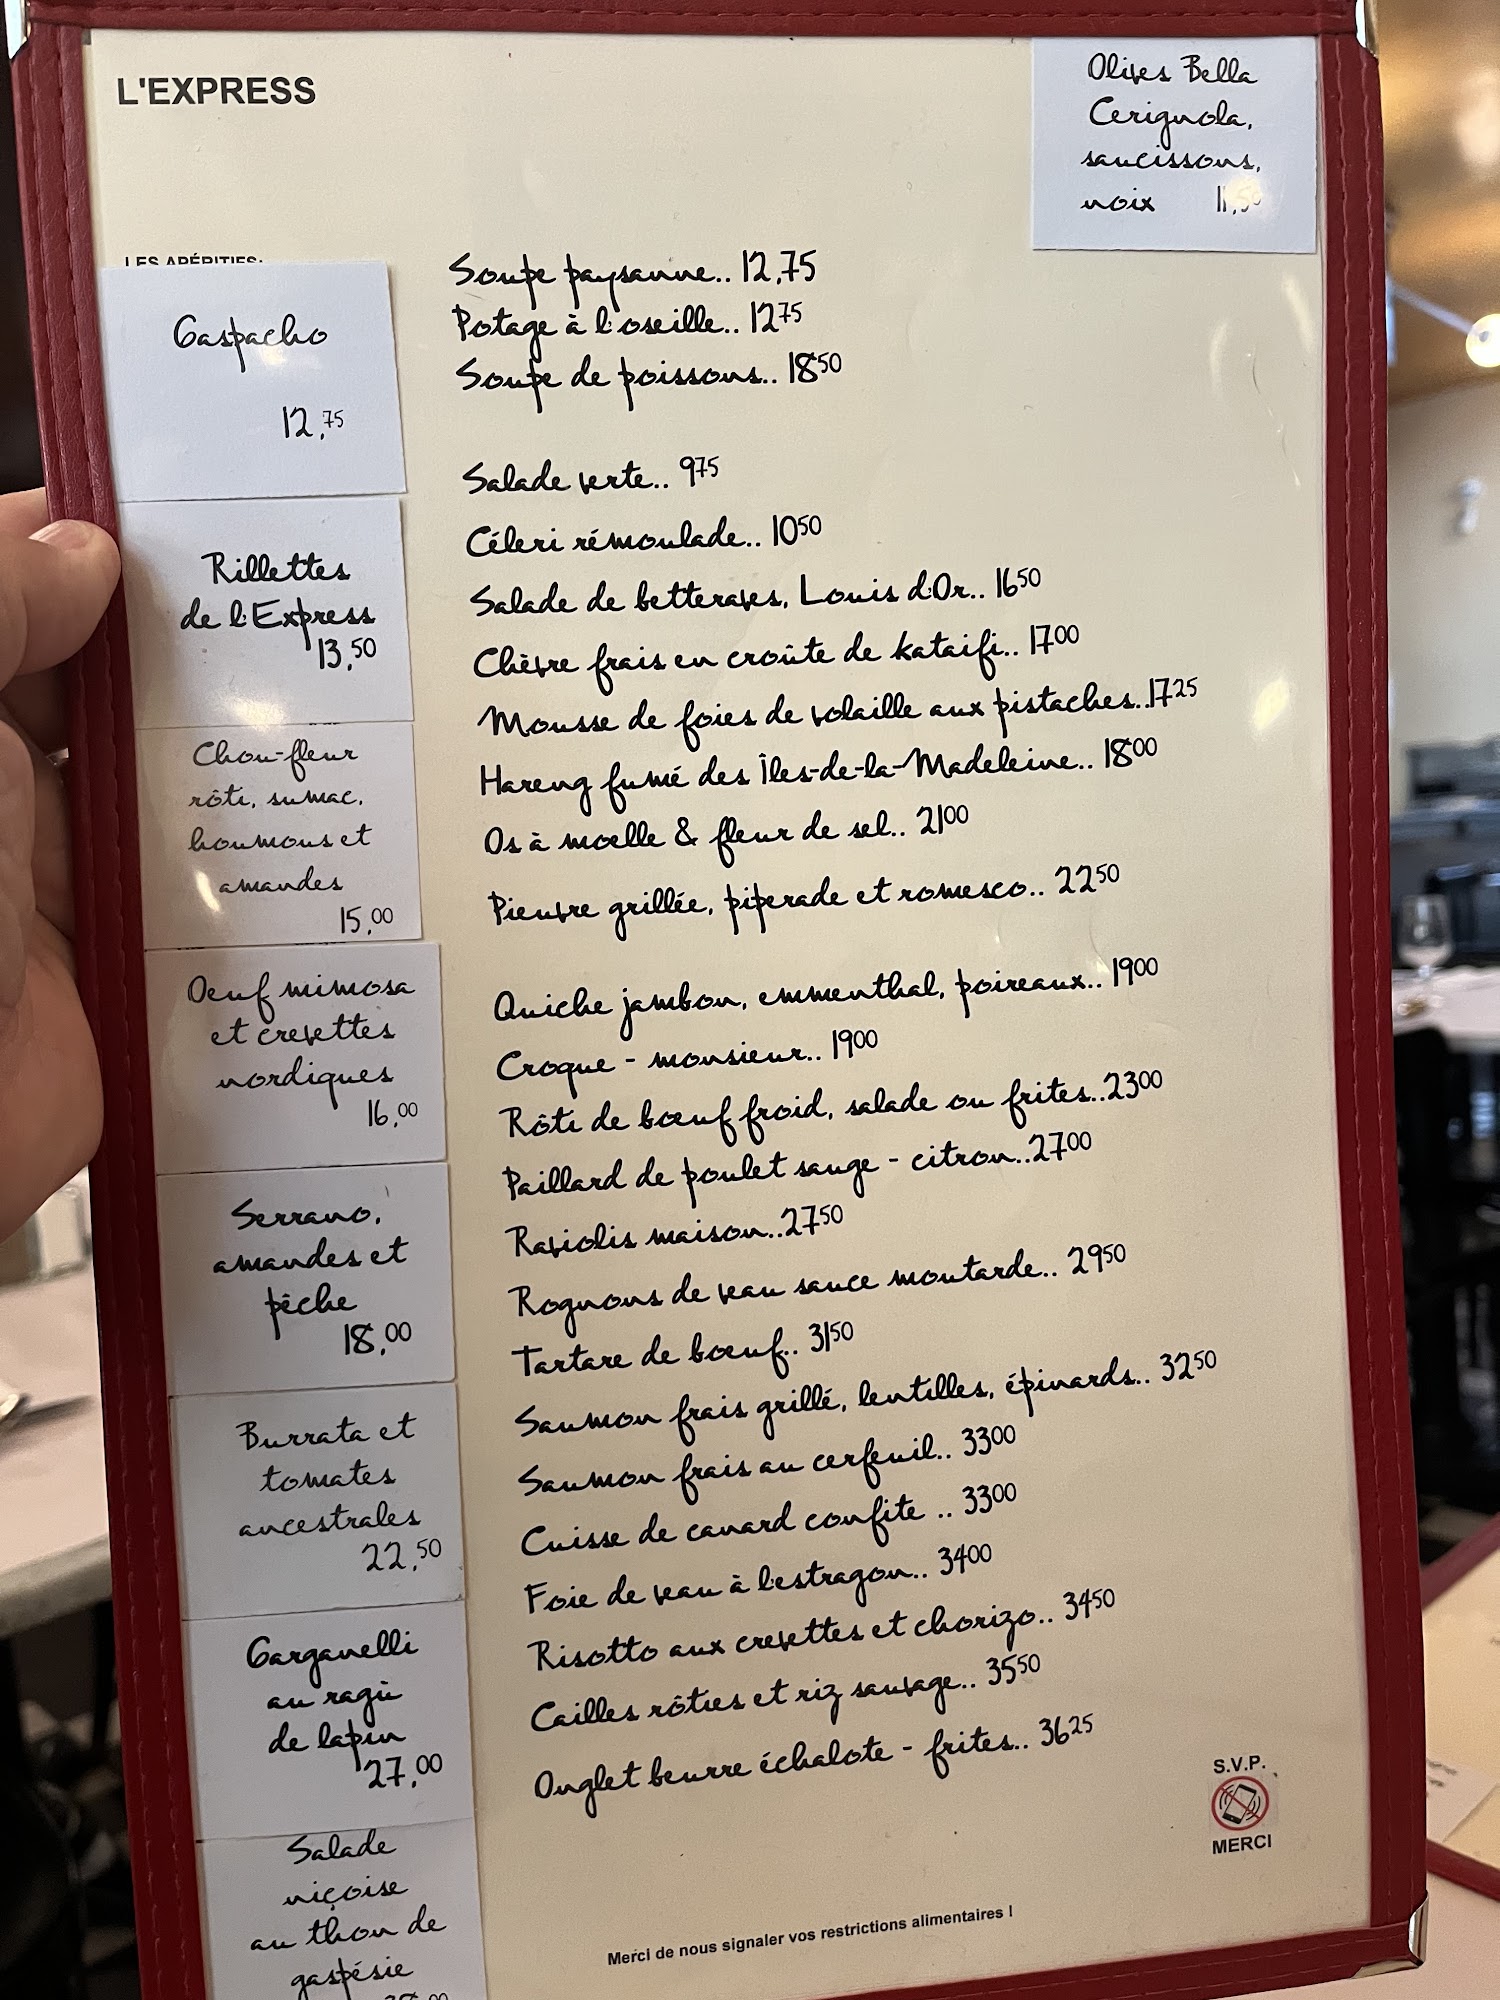 L'EXPRESS
Olives Bella
Cerignola,
saucissons,
noix 11,50
LES APÉRITIFS:
Gaspacho
12,75
Rillettes
de l'Express
13,50
Chou-fleur
rôti, sumac,
houmous et
amandes
15,00
Oeuf mimosa
et crevettes
nordiques
16,00
Serrano,
amandes et
pêche
18,00
Burrata et
tomates
ancestrales
22,50
Garganelli
au ragù
de lapin
27,00
Salade
niçoise
au thon de
gaspésie
Soupe paysanne.. 12,75
Potage à l'oseille.. 1275
Soupe de poissons.. 1850
Salade verte.. 975
Céleri rémoulade.. 1050
Salade de betteraves, Louis d'Or.. 1650
Chèvre frais en croûte de kataifi.. 1700
Mousse de foies de volaille aux pistaches..1725
Hareng fumé des Îles-de-la-Madeleine.. 1800
Os à moelle & fleur de sel.. 2100
Pieuvre grillée, piperade et romesco.. 2250
Quiche jambon, emmenthal, poireaux.. 1900
Croque - monsieur.. 1900
Rôti de bœuf froid, salade ou frites..2300
Paillard de poulet sauge - citron..2700
Raviolis maison..2750
Rognons de veau sauce moutarde.. 2950
Tartare de bœuf.. 3150
Saumon frais grillé, lentilles, épinards.. 3250
Saumon frais au cerfeuil.. 3300
Cuisse de canard confite .. 3300
Foie de veau à l'estragon.. 3400
Risotto aux crevettes et chorizo.. 3450
Cailles rôties et riz sauvage.. 3550
Onglet beurre échalote - frites.. 3625
S.V.P.
MERCI
Merci de nous signaler vos restrictions alimentaires !